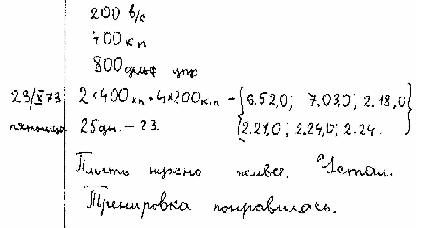 200 в/с
400 кп
800 дмф упр
23/X 73 2×400кп + 4×200к.п - {6.52,0; 7.03,0; 2.18,0
пятница 25дн. - 23. 2.21,0; 2.24,0; 2.24.}
Пить нужно Устал.
Тренировка понравилась.